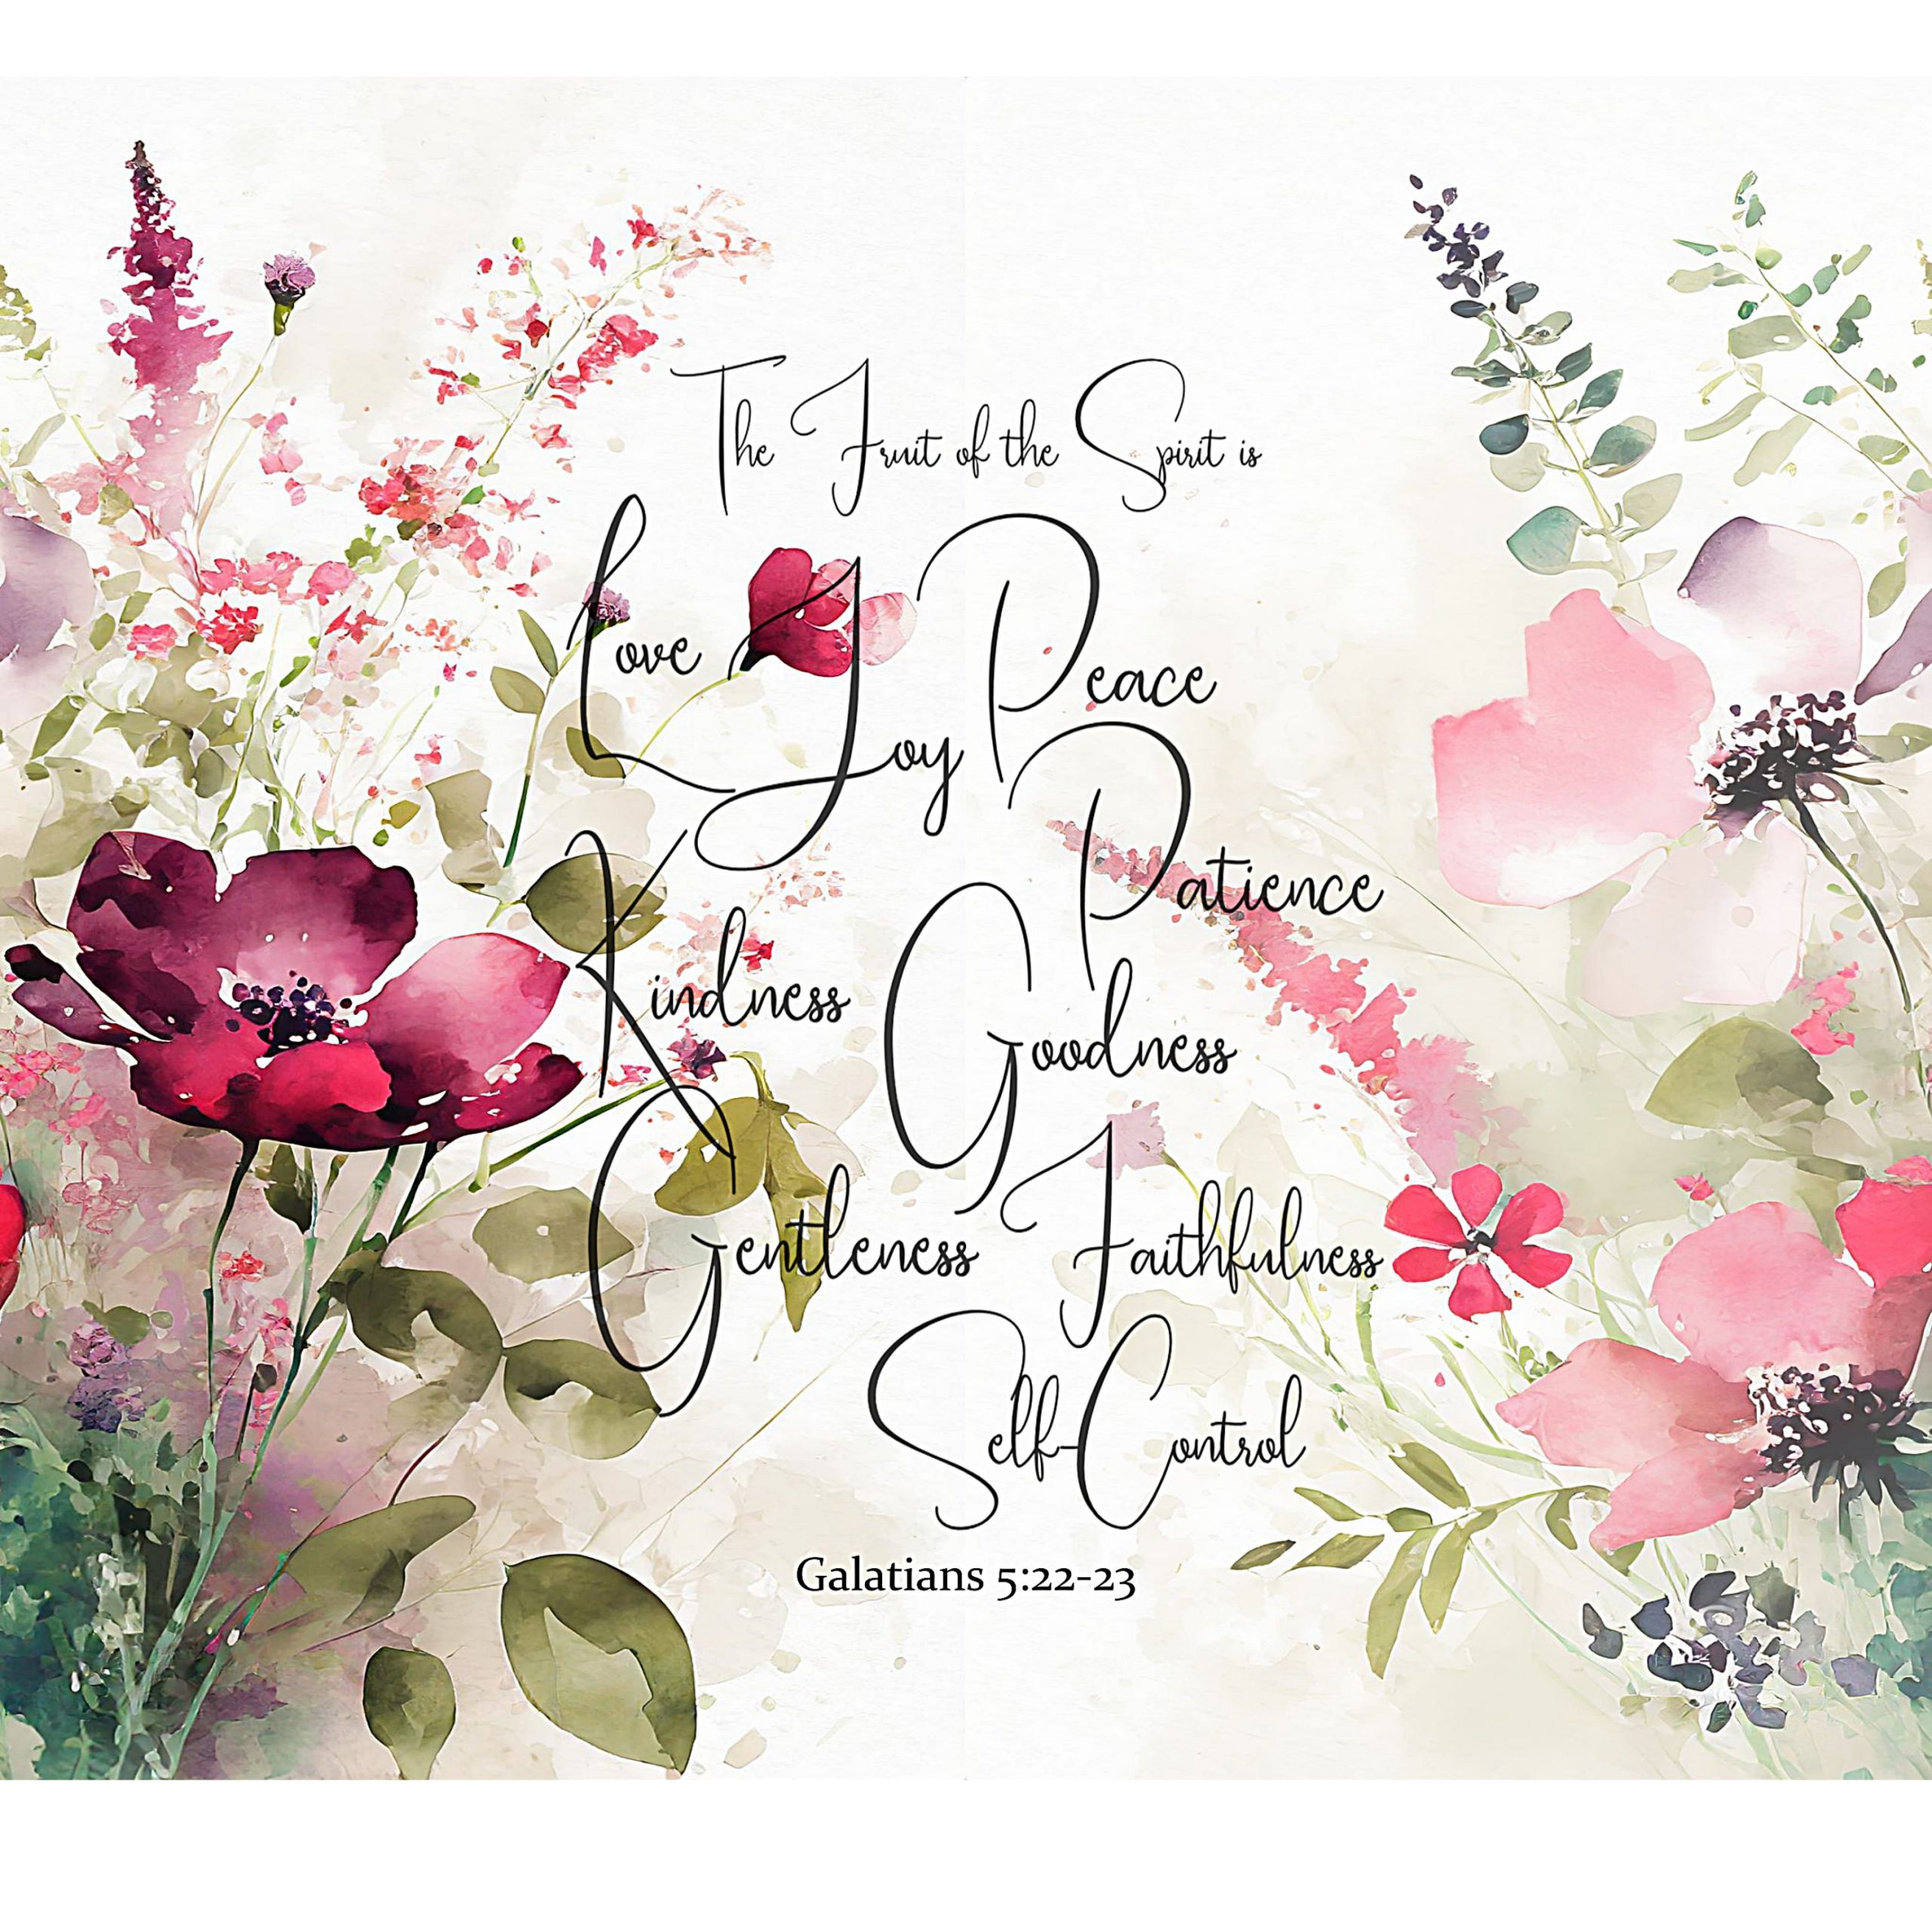 The Fruit of the Spirit is
Love Joy Peace
Patience
Kindness Goodness
Gentleness Faithfulness
Self-Control
Galatians 5:22-23